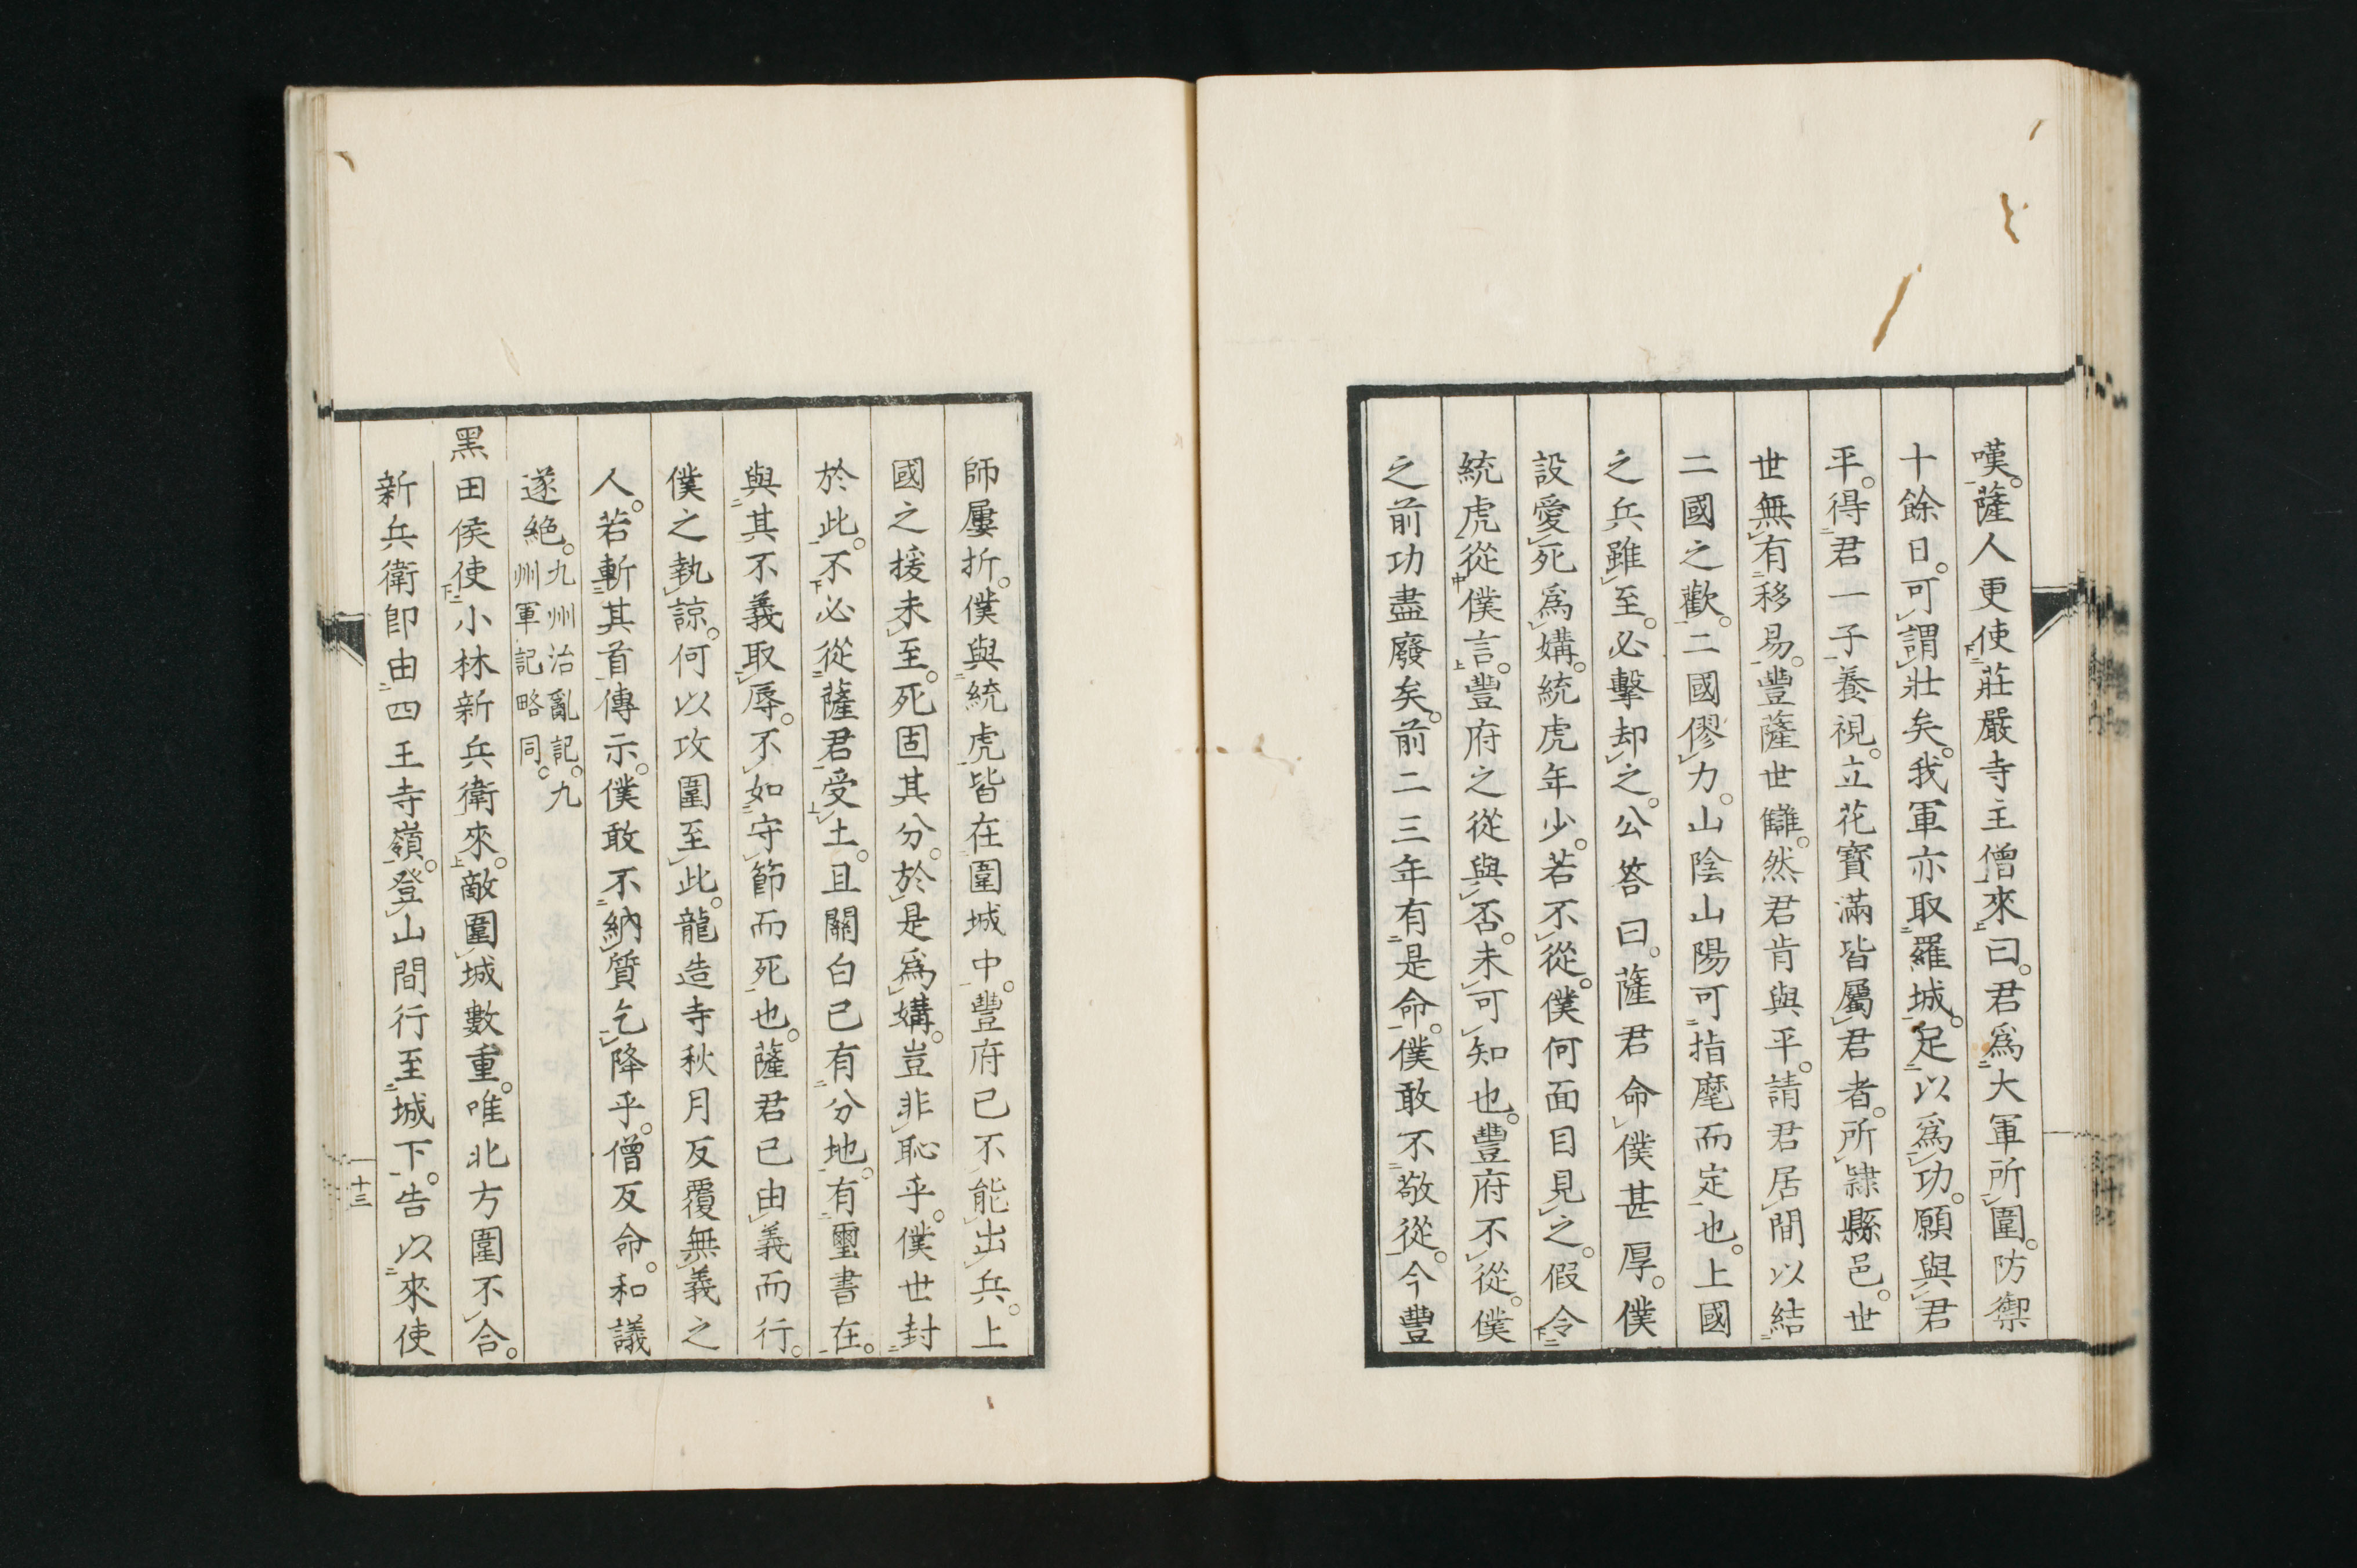 嘆。薩人更使莊嚴寺主僧來曰。君爲大軍所圍。防禦
十餘日。可謂壯矣。我軍亦取羅城。足以爲功。願與君
平。得君一子養視。立花寶滿皆屬君者。所隷縣邑。世
世無有移易。豐薩世讎。然君肯與平。請君居間以結
二國之歡。二國僇力。山陰山陽可指麾而定也。上國
之兵雖至。必擊却之。公答曰。薩君命僕甚厚。僕
設愛死爲媾。統虎年少。若不從。僕何面目見之。假令
統虎從僕言。豐府之從與否。未可知也。豐府不從。僕
之前功盡廢矣。前二三年有是命。僕敢不敬從。今豐
師屢折。僕與統虎皆在圍城中。豐府已不能出兵。上
國之援未至。死固其分。於是爲媾。豈非恥乎。僕世封
於此。不必從薩君受土。且關白已有分地。有璽書在。
與其不義取辱。不如守節而死也。薩君已由義而行。
僕之執諒。何以攻圍至此。龍造寺秋月反覆無義之
人。若斬其首傳示。僕敢不納質乞降乎。僧反命。和議
遂絶。九州治亂記。九
州軍記略同。
黑田侯使小林新兵衛來。敵圍城數重。唯北方圍不合。
新兵衛卽由四王寺嶺。登山間行至城下。告以來使
十三